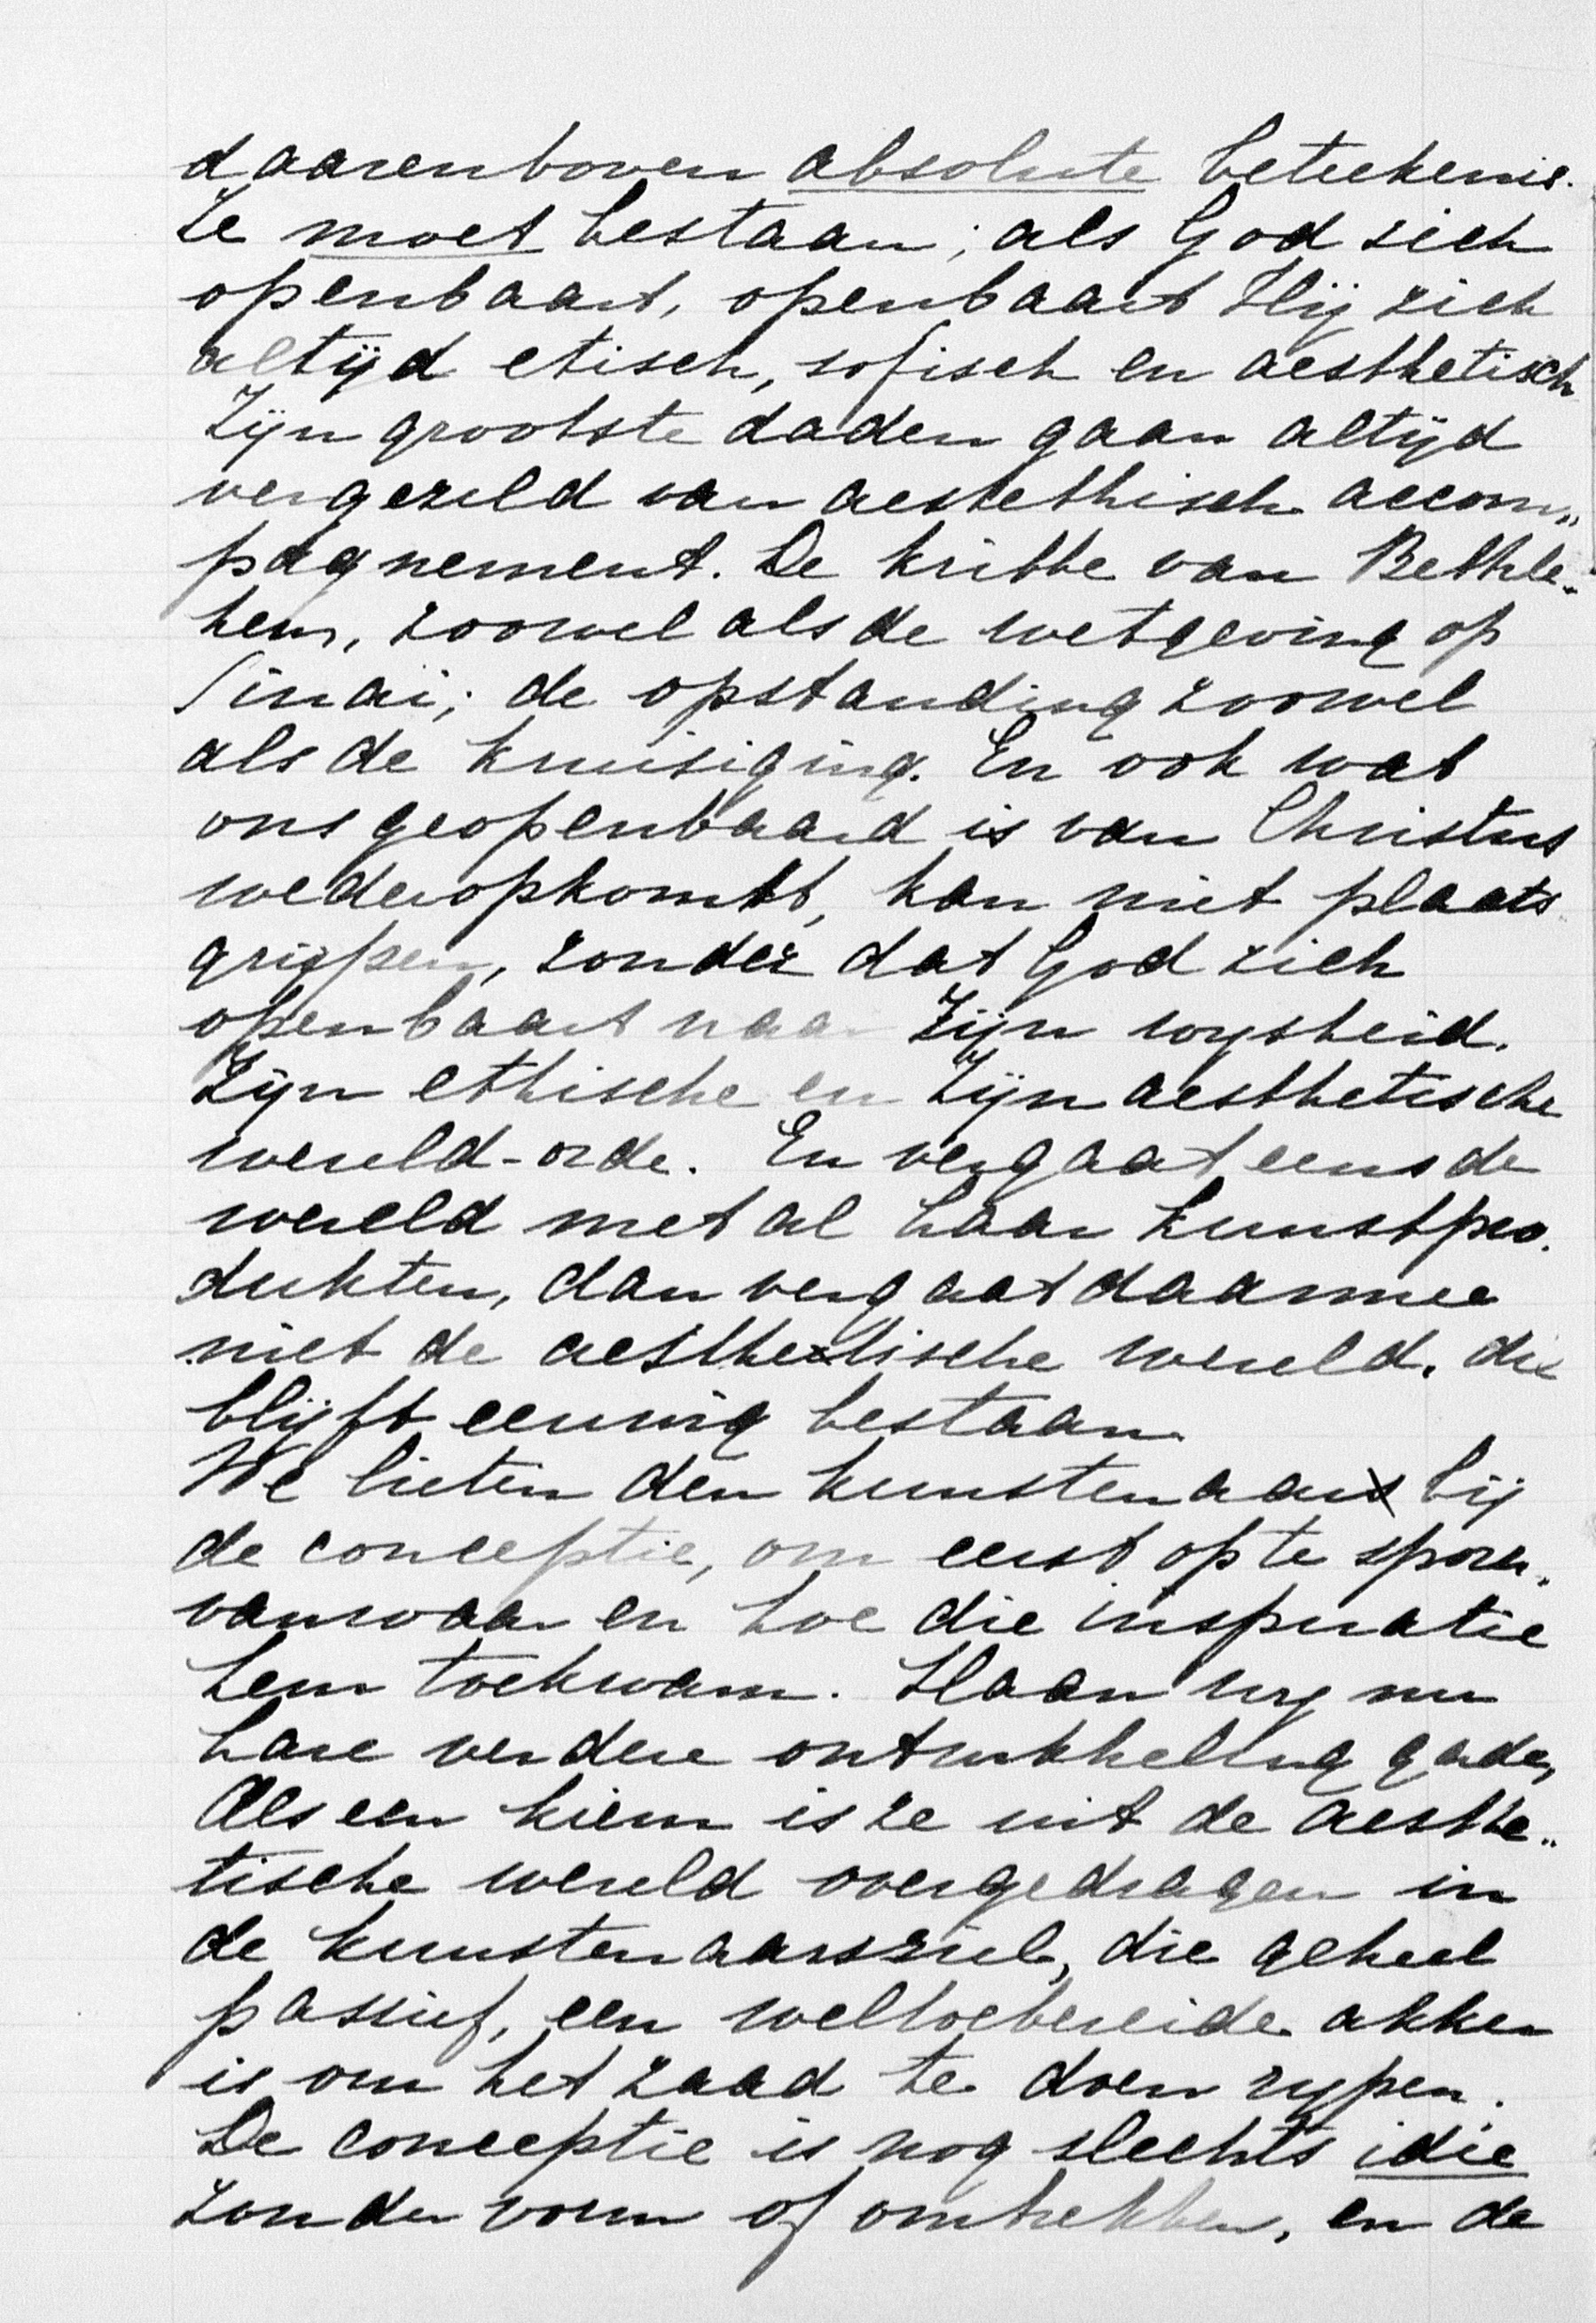 daarenboven absolute beteekenis.
Ze moet bestaan; als God zich
openbaart, openbaart Hij zich
altijd etisch, sofisch en aesthetisch
Zijn grootste daden gaan altijd
vergezeld van aestethisch accom„
pagnement. De kribbe van Bethle„
hem, zoowel als de wetgeving op
Sinaï; de opstanding zoowel
als de kruisiging. En ook wat
ons geopenbaard is van Christus
wederopkomst, kan niet plaats
grijpen, zonder dat God zich
openbaart naar Zijn wysheid.
Zijn ethische en Zijn aesthetische
wereld-orde. En vergaat eens de
wereld met al haar kunstpro„
dukten, dan vergaat daarmee
niet de aesthetische wereld. die
blijft eeuwig bestaan
We lieten den kunstenaar bij
de conceptie, om eerst op te sporen,
vanwaar en hoe die inspiratie
hem toekwam. Slaan wy nu
hare verdere ontwikkeling gade,
Als een kiem is ze uit de aesthe„
tische wereld overgedragen in
de kunstenaarsziel, die geheel
passief, een weltoebereide akker
is om het zaad te doen rypen.
De conceptie is nog slechts idie
zonder vorm of omtrekken, en de